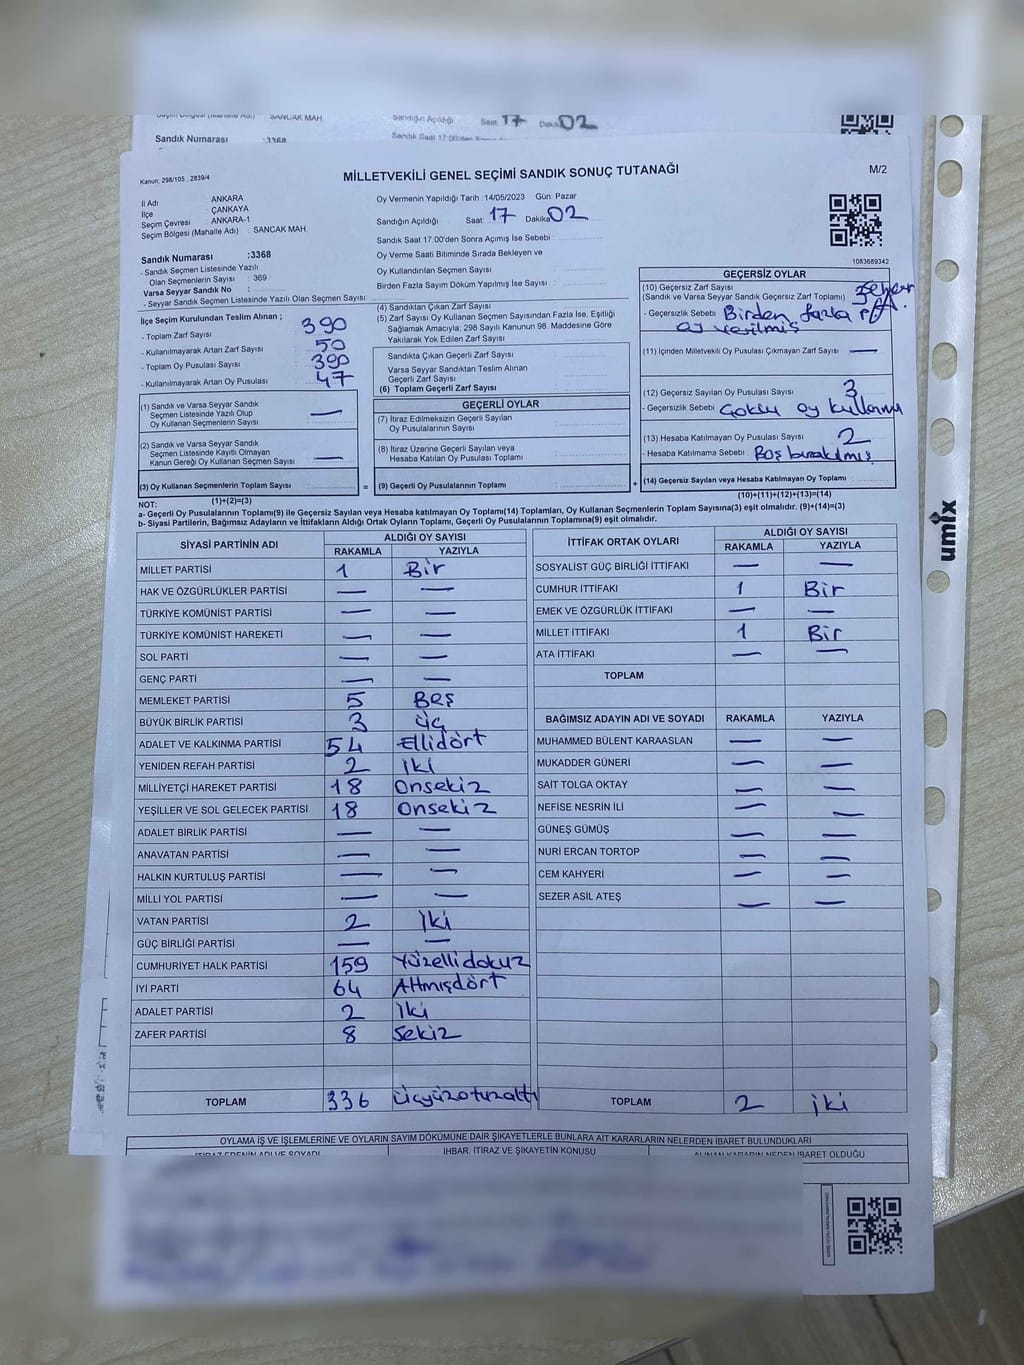 SANCAK MAH.
Sandığın Açıldığı Saat 17 Dakika 02
Sandık Numarası :3368
Kanun: 298/105 , 2839/4
MİLLETVEKİLİ GENEL SEÇİMİ SANDIK SONUÇ TUTANAĞI
M/2
İl Adı ANKARA
İlçe ÇANKAYA
Seçim Çevresi ANKARA-1
Seçim Bölgesi (Mahalle Adı) : SANCAK MAH.
Oy Vermenin Yapıldığı Tarih :14/05/2023 Gün: Pazar
Sandığın Açıldığı Saat: 17 Dakika 02
Sandık Saat 17:00'den Sonra Açımış İse Sebebi :
Oy Verme Saati Bitiminde Sırada Bekleyen ve
Oy Kullandırılan Seçmen Sayısı
Birden Fazla Sayım Döküm Yapılmış İse Sayısı :
1083689342
Sandık Numarası :3368
- Sandık Seçmen Listesinde Yazılı
Olan Seçmenlerin Sayısı : 369
Varsa Seyyar Sandık No :
- Seyyar Sandık Seçmen Listesinde Yazılı Olan Seçmen Sayısı:
İlçe Seçim Kurulundan Teslim Alınan ;
- Toplam Zarf Sayısı 390
- Kullanılmayarak Artan Zarf Sayısı 50
- Toplam Oy Pusulası Sayısı 390
- Kullanılmayarak Artan Oy Pusulası 47
(1) Sandık ve Varsa Seyyar Sandık
Seçmen Listesinde Yazılı Olup
Oy Kullanan Seçmenlerin Sayısı —
(2) Sandık ve Varsa Seyyar Sandık
Seçmen Listesinde Kayıtlı Olmayan
Kanun Gereği Oy Kullanan Seçmen Sayısı —
(3) Oy Kullanan Seçmenlerin Toplam Sayısı
(1)+(2)=(3)
(4) Sandıktan Çıkan Zarf Sayısı
(5) Zarf Sayısı Oy Kullanan Seçmen Sayısından Fazla İse, Eşitliği
Sağlamak Amacıyla; 298 Sayılı Kanunun 98. Maddesine Göre
Yakılarak Yok Edilen Zarf Sayısı
Sandıkta Çıkan Geçerli Zarf Sayısı
Varsa Seyyar Sandıktan Teslim Alınan
Geçerli Zarf Sayısı
(6) Toplam Geçerli Zarf Sayısı
GEÇERLİ OYLAR
(7) İtiraz Edilmeksizin Geçerli Sayılan
Oy Pusulalarının Sayısı
(8) İtiraz Üzerine Geçerli Sayılan veya
Hesaba Katılan Oy Pusulası Toplamı
= (9) Geçerli Oy Pusulalarının Toplamı +
GEÇERSİZ OYLAR
(10) Geçersiz Zarf Sayısı
(Sandık ve Varsa Seyyar Sandık Geçersiz Zarf Toplamı)
- Geçersizlik Sebebi Birden fazla
oy verilmiş
(11) İçinden Milletvekili Oy Pusulası Çıkmayan Zarf Sayısı —
(12) Geçersiz Sayılan Oy Pusulası Sayısı 3
- Geçersizlik Sebebi Çoklu oy
(13) Hesaba Katılmayan Oy Pusulası Sayısı 2
- Hesaba Katılmama Sebebi Boş bırakılmış
(14) Geçersiz Sayılan veya Hesaba Katılmayan Oy Toplamı
(10)+(11)+(12)+(13)=(14)
NOT:
a- Geçerli Oy Pusulalarının Toplamı(9) ile Geçersiz Sayılan veya Hesaba Katılmayan Oy Toplamı(14) Toplamları, Oy Kullanan Seçmenlerin Toplam Sayısına(3) eşit olmalıdır. (9)+(14)=(3)
b- Siyasi Partilerin, Bağımsız Adayların ve İttifakların Aldığı Ortak Oyların Toplamı, Geçerli Oy Pusulalarının Toplamına(9) eşit olmalıdır.
SİYASİ PARTİNİN ADI ALDIĞI OY SAYISI
RAKAMLA YAZIYLA
MİLLET PARTİSİ 1 Bir
HAK VE ÖZGÜRLÜKLER PARTİSİ — —
TÜRKİYE KOMÜNİST PARTİSİ — —
TÜRKİYE KOMÜNİST HAREKETİ — —
SOL PARTİ — —
GENÇ PARTİ — —
MEMLEKET PARTİSİ 5 Beş
BÜYÜK BİRLİK PARTİSİ 3 üç
ADALET VE KALKINMA PARTİSİ 54 Ellidört
YENİDEN REFAH PARTİSİ 2 iki
MİLLİYETÇİ HAREKET PARTİSİ 18 Onsekiz
YEŞİLLER VE SOL GELECEK PARTİSİ 18 Onsekiz
ADALET BİRLİK PARTİSİ — —
ANAVATAN PARTİSİ — —
HALKIN KURTULUŞ PARTİSİ — —
MİLLİ YOL PARTİSİ — —
VATAN PARTİSİ 2 iki
GÜÇ BİRLİĞİ PARTİSİ — —
CUMHURİYET HALK PARTİSİ 159 Yüzellidokuz
İYİ PARTİ 64 Altmışdört
ADALET PARTİSİ 2 iki
ZAFER PARTİSİ 8 Sekiz
TOPLAM 336 üçyüzotuzaltı
İTTİFAK ORTAK OYLARI ALDIĞI OY SAYISI
RAKAMLA YAZIYLA
SOSYALİST GÜÇ BİRLİĞİ İTTİFAKI — —
CUMHUR İTTİFAKI 1 Bir
EMEK VE ÖZGÜRLÜK İTTİFAKI — —
MİLLET İTTİFAKI 1 Bir
ATA İTTİFAKI — —
TOPLAM
BAĞIMSIZ ADAYIN ADI VE SOYADI RAKAMLA YAZIYLA
MUHAMMED BÜLENT KARAASLAN — —
MUKADDER GÜNERİ — —
SAİT TOLGA OKTAY — —
NEFİSE NESRİN İLİ — —
GÜNEŞ GÜMÜŞ — —
NURİ ERCAN TORTOP — —
CEM KAHYERİ — —
SEZER ASİL ATEŞ — —
TOPLAM 2 iki
OYLAMA İŞ VE İŞLEMLERİNE VE OYLARIN SAYIM DÖKÜMÜNE DAİR ŞİKAYETLERLE BUNLARA AİT KARARLARIN NELERDEN İBARET BULUNDUKLARI
İTİRAZ EDENİN ADI VE SOYADI İHBAR, İTİRAZ VE ŞİKAYETİN KONUSU ALINAN KARARIN NEDEN İBARET OLDUĞU
umix